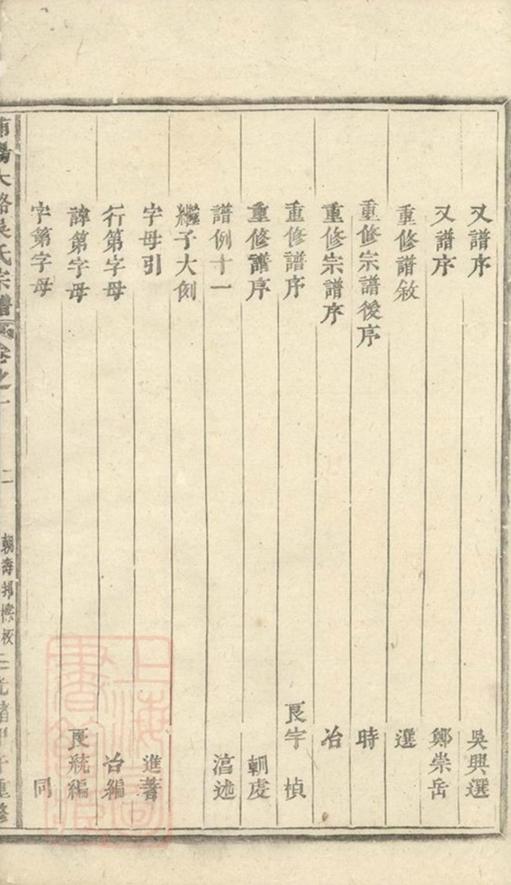 又譜序 吳興選
又譜序 鄭崇岳
重修譜敘 選
重修宗譜後序 時
重修宗譜序 冶
重修譜序 良宇 楨
重修譜序 朝虔
譜例十一 淯述
繼子大例
字母引 進著
行第字母 冶編
諱第字母 良統編
字第字母 同
大路吳氏宗譜 卷之一 二
重修